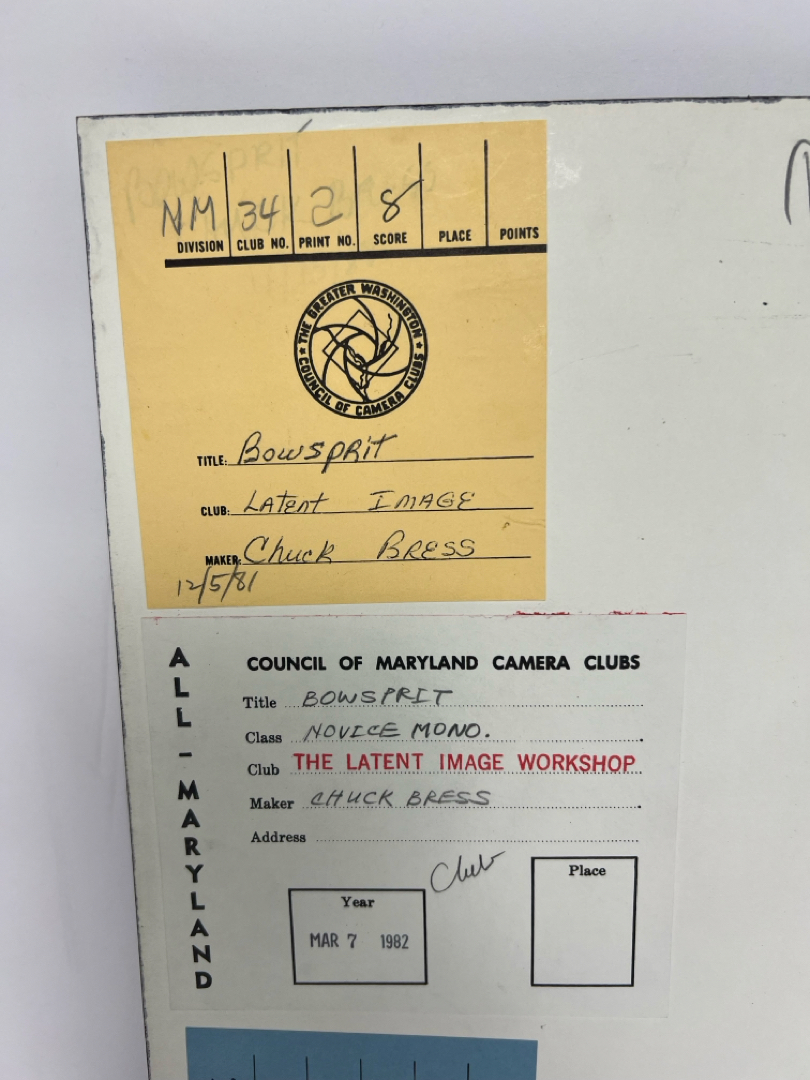 NM 34 2 8
DIVISION CLUB NO. PRINT NO. SCORE PLACE POINTS
★ THE GREATER WASHINGTON ★
COUNCIL OF CAMERA CLUBS
TITLE: Bowsprit
CLUB: LATENT IMAGE
MAKER: Chuck BRESS
12/5/81
ALL - MARYLAND
COUNCIL OF MARYLAND CAMERA CLUBS
Title BOWSPRIT
Class NOVICE MONO.
Club THE LATENT IMAGE WORKSHOP
Maker CHUCK BRESS
Address
Place
Year
MAR 7 1982